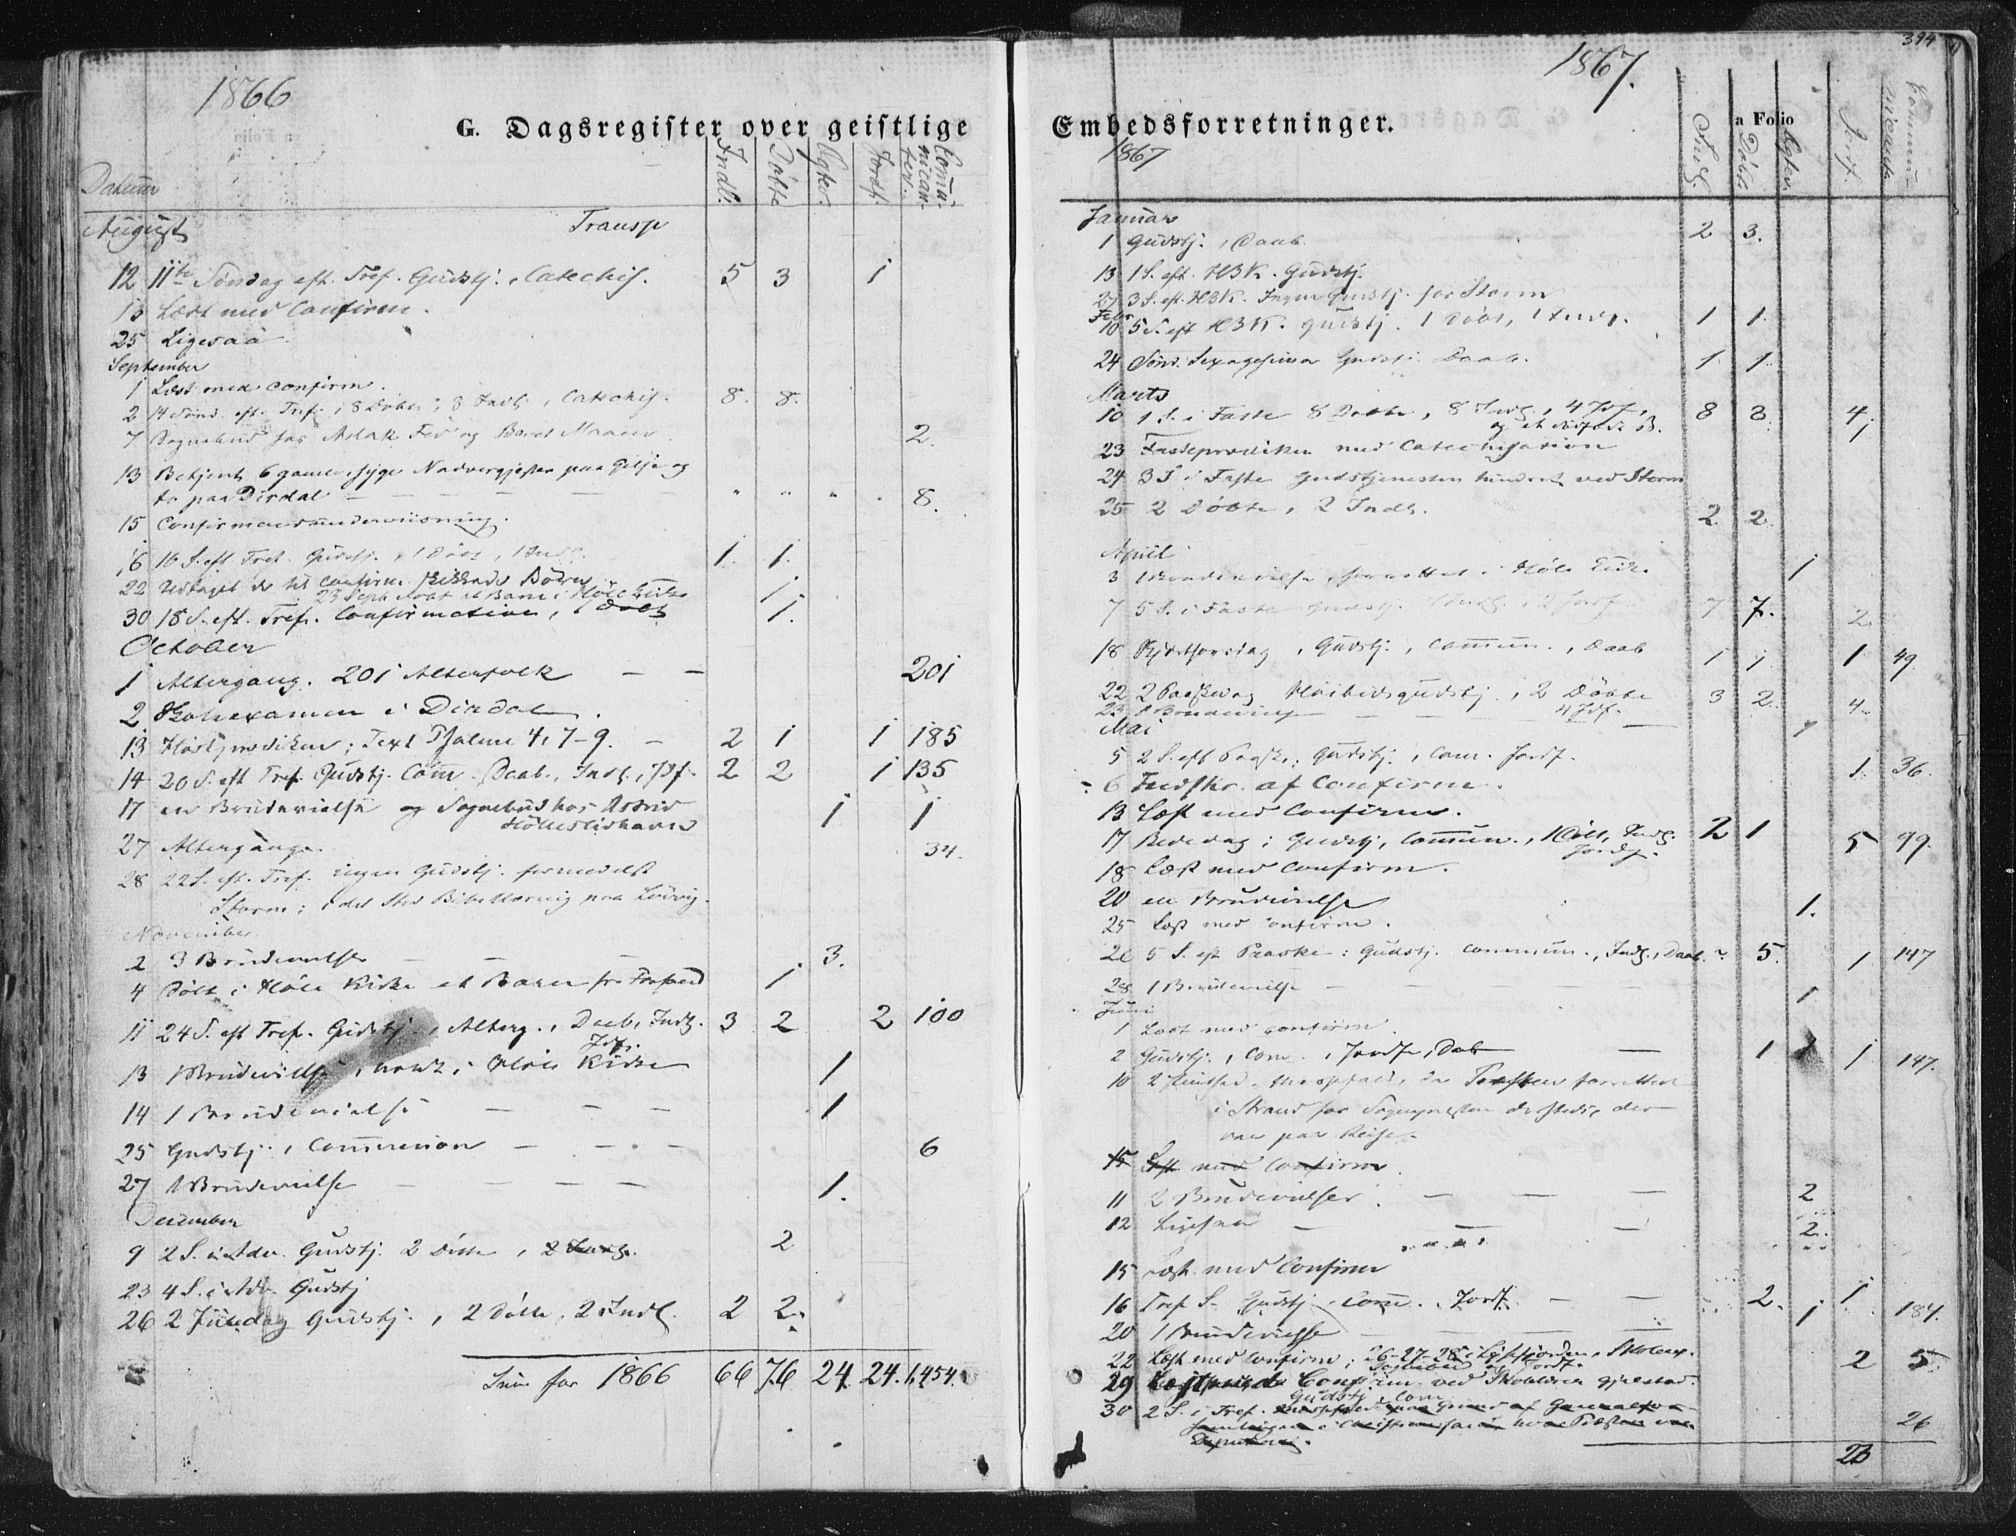 1866
G. Dagsregister over geistlige
Datum Indl. Døbte Ægtev. Jordf. Comunicanter.
August Transp
12 11te Søndag eft. Tref. Gudstj., Catechis. 5 3 1
13 Læst med Confirm.
25 Ligesaa
September
1 Læst med Confirm.
2 14 Sønd. eft. Tref., 8 Døbte, 8 Indl., Catechis. 8. 8.
7 Sognebud hos Aslak og Beret 2.
13 Betjent 6 gamle, syge Nadvergjester paa Gilje og
to paa Dirdal — — — 8.
15 Confirmandunderviisning.
16 16 S. eft Tref. Gudstj., 1 Døbt, 1 Indl. 1. 1.
22 Udtaget de til Confirm. Børn
23 Sept. døbt et Barn i Høle Kirke 1.
30 18 S. eft. Tref. Confirmation, 1 Døbt 1.
October
1 Altergang. 201 Alterfolk — — 201
2 Skoleexamen i Dirdal.
13 Høstprædiken; Text Psalme 4, 7-9. — 2 1 1 185
14 20 S. eft Tref. Gudstj. Com. Daab., Indl., Jdf. 2 2 1 135
17 en Brudevielse og Sognebud hos Astrid
1 1
27 Altergange. 34.
28 22 S. eft. Tref. ingen Gudstj. formedelst
Storm; i det Sted Bibellæsning paa
November
2 3 Brudevielser — — — 3.
4 Døbt i Høle Kirke et Barn fra 1
11 24 S. eft Tref. Gudstj., Alterg., Daab, Indl. 3 2 2 100
Jdf.
13 1 Brudevielse, i Høle Kirke 1
14 1 Brudevielse — — — 1
25 Gudstj., Communion — — — 6
27 1 Brudevielse — — — 1.
December
9 2 S. i Adv. Gudstj. 2 Døbte, 2 Indl. 2
23 4 S. i Adv. Gudstj
26 2 Juledag Gudstj., 2 Døbte, 2 Indl. 2 2.
Sum for 1866 66 76 24. 24. 1,454.
1867. 394
Embedsforretninger. a Folio
1867 Indl. Døbt. Ægtev. Jordf. Communicante
Januar
1 Gudstj., Daab. 2 3.
13 1 S. eft. H3K. Gudstj.
27 3 S. eft. H3K. Ingen Gudstj. for Storm
Febr
10 5 S. eft H3K. Gudstj. 1 Døbt, 1 Indl. 1 1.
24 Sønd. Sexagesima Gudstj. Daab. 1. 1.
Marts
10 1 S. i Faste 8 Døbte, 8 Indl., 4 Jdf., 8 8 4.
og et 1
23 Fasteprædiken med Catechisation
24 3 S i Faste Gudstjenesten hindret ved Storm
25 2 Døbte, 2 Indl. 2 2.
April
3 1 Brudevielse, forrettet i Høle Kirke 1
7 5 S. i Faste Gudstj. Indl., 2 Jordf. 7 7. 2
18 Skjærthorsdag, Gudstj., Comun., Daab 1 1 1 49
22 2 Paaskedag Høitidsgudstj., 2 Døbte 3 2. 4.
23. 1 Brudevielse — — 4 Jdf. 1
Mai
5 2 S. eft Paaske; Gudstj., Com. Jordf. 1. 36.
6 Indskr. af Confirm.
13 Læst med Confirm.
17 Bededag; Gudstj, Comun., 1 Døbt, Indl. 2 1 5 99.
Jordf.
18 Læst med Confirm.
20 en Brudevielse 1.
25 Læst med Confirm.
26 5 S. eft Paaske: Gudstj. Commun., Indl., Daab. 5. 1 147
28 1 Brudevielse — — 1
Juni
1 Læst med Confirm.
2 Gudstj., Com., Jordf., Dab — 1 1 147.
10 2 Pintsed. Messefald, da Præsten forrettet
i Strand for Sognepræsten dersteds, der
var paa Reise.
15 Læst med Confirm.
11 2 Brudevielser — — — 2
12 Ligesaa — — — 2.
15 Læst med Confirm
16 Tref S. Gudstj. Com., Jordf. — — 2. 1 184.
20 1 Brudevielse — — — 1
22 Læst med Confirm; 26-27-28 i Lysefjorden, Skoleex.
Sognebud og Jordf. 2 5.
29 Læst med Confirm. ved Skolelærer Gjelstad.
Gudstj. Com
30 2 S. i Tref. Messefald paa Grund af Generalfor-
samlingen i Christianssand hvor Præsten var 26
Deputeret.
26